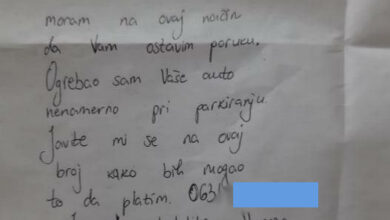 moram na ovaj način
da Vam ostavim poruku.
Ogrebao sam Vaše auto
nenamerno pri parkiranju
Javite mi se na ovaj
broj kako bih mogao
to da platim. 063/